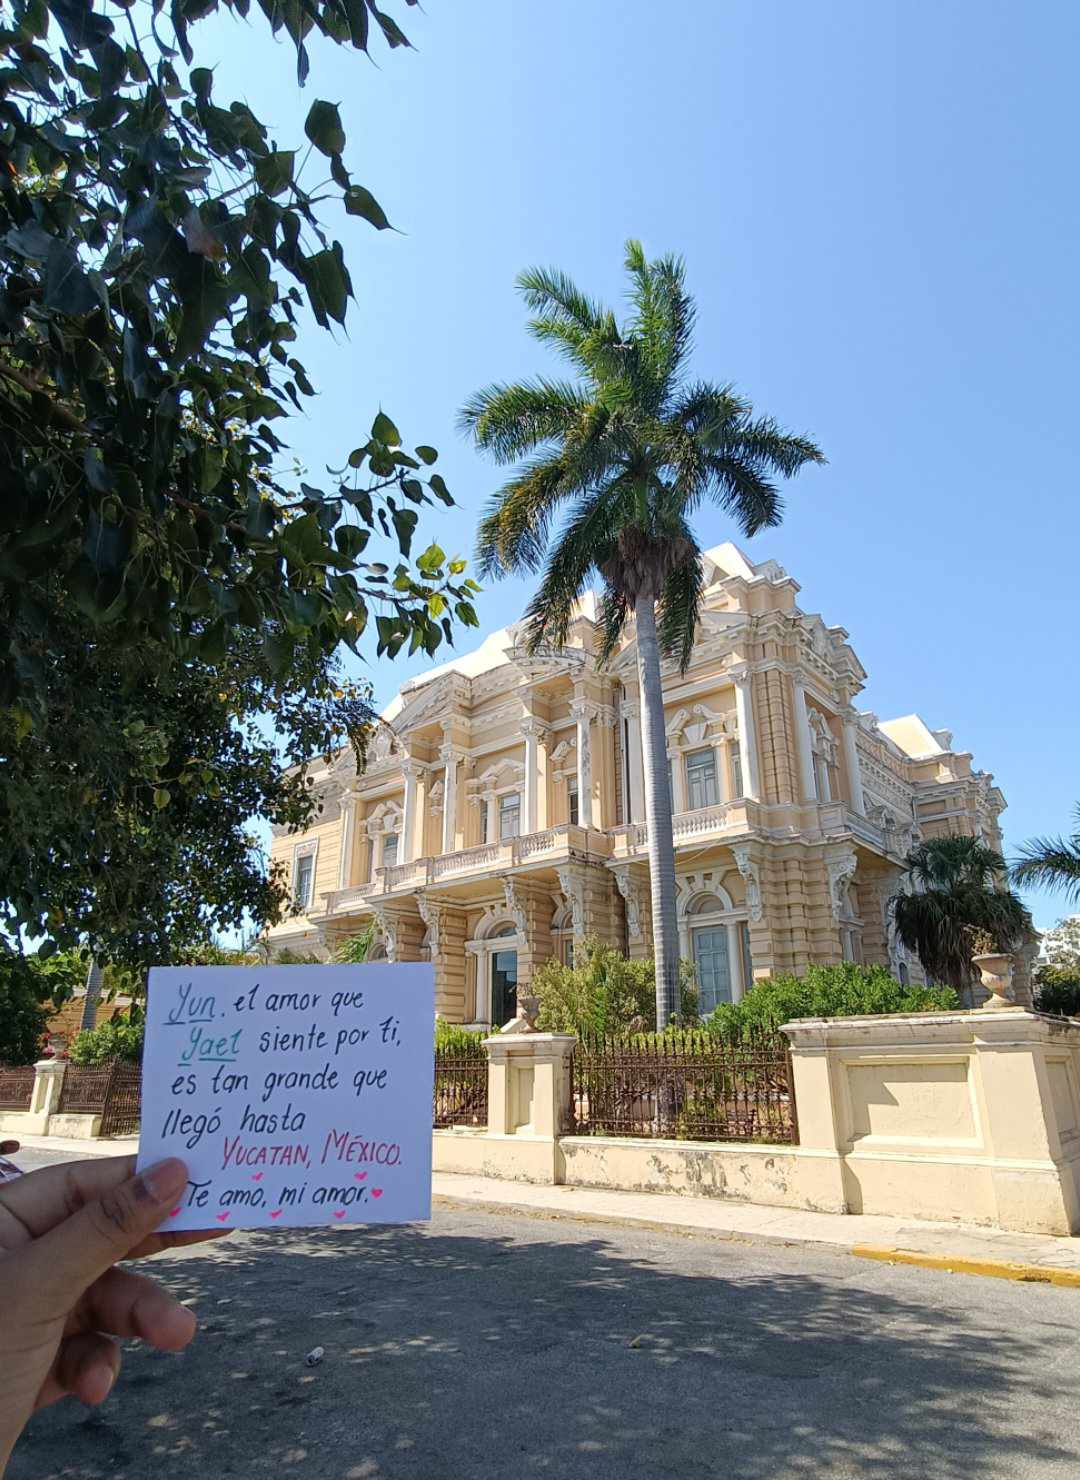 Yun, el amor que
Yael siente por ti,
es tan grande que
llegó hasta
YUCATAN, MÉXICO.
Te amo, mi amor.